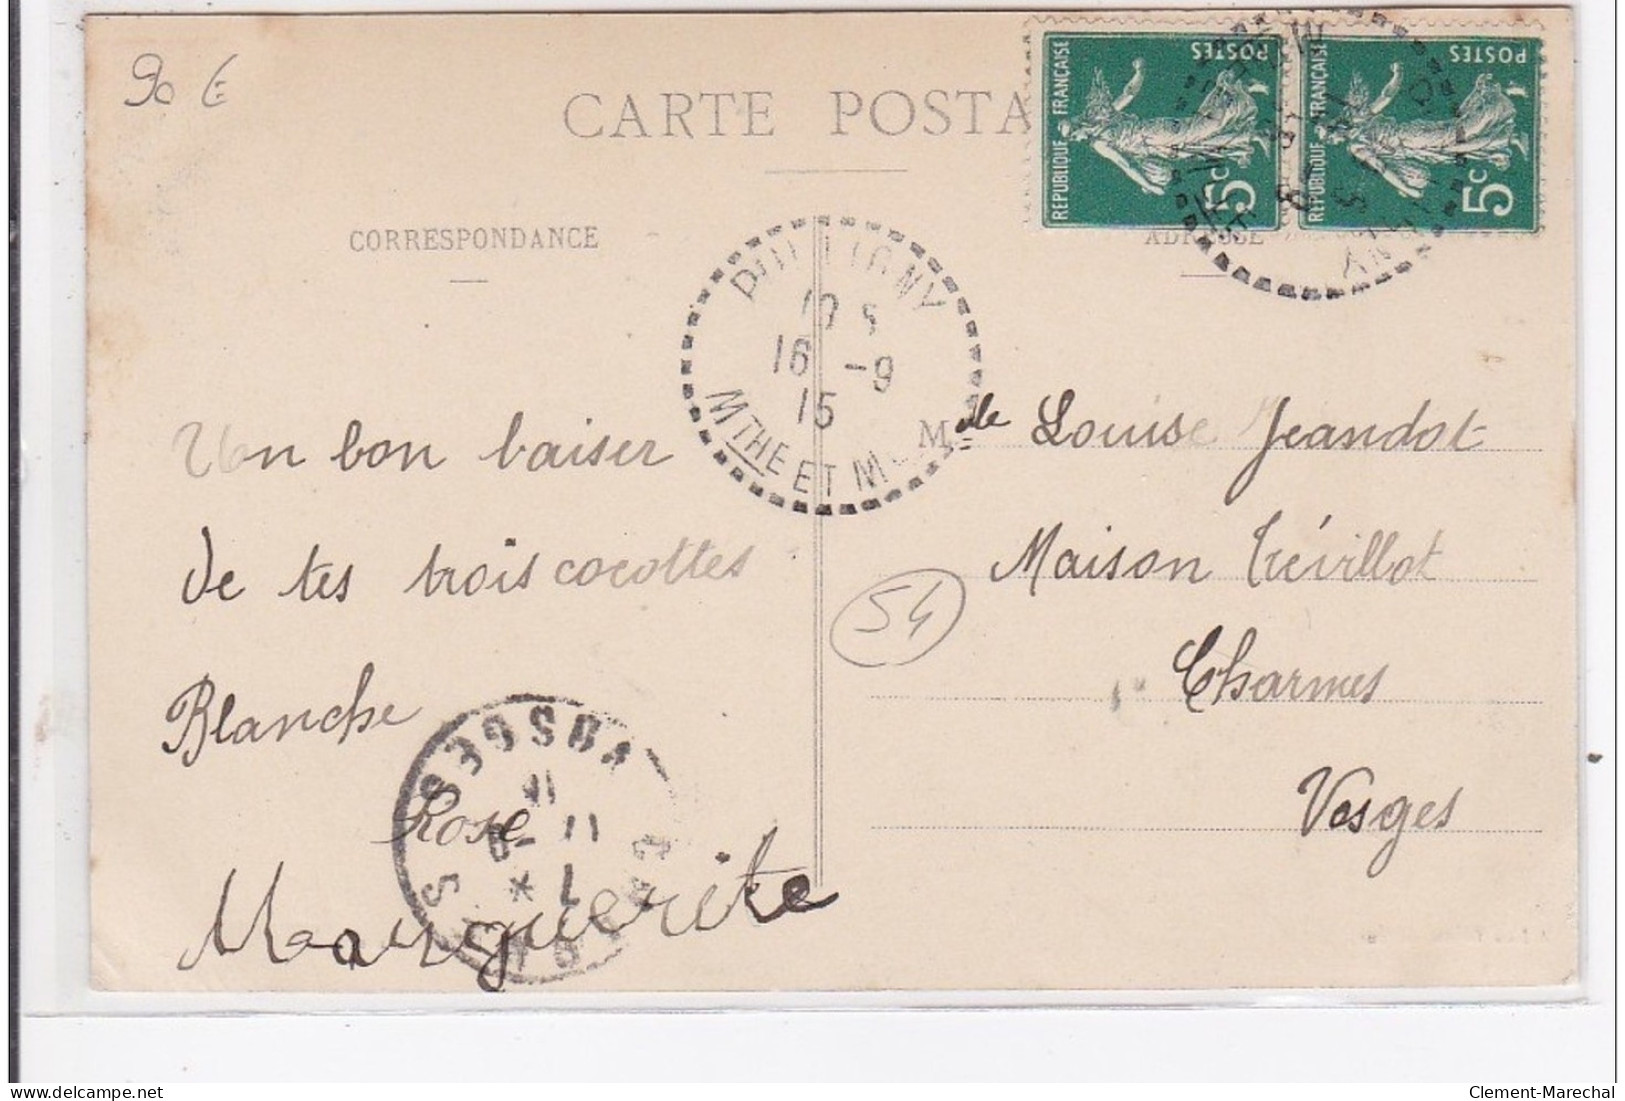 90 €
CARTE POSTA
CORRESPONDANCE
ADRESSE
POSTES
REPUBLIQUE FRANÇAISE
5c
POSTES
REPUBLIQUE FRANÇAISE
5c
PULLIGNY
16 -9
15
MTHE ET M
Un bon baiser
de tes trois cocottes
Blanche
Rose
Marguerite
54
Mlle Louise Jeandot
Maison Trévillot
Charmes
Vosges
VOSGES
Clement-Marechal